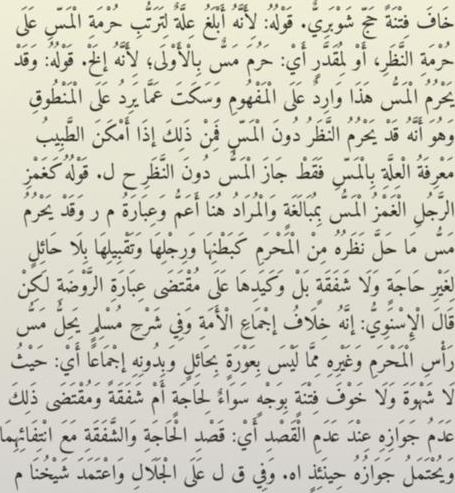 خَافَ فِتْنَةً حَجّ شَوْبَرِيٌّ. قَوْلُهُ: لِأَنَّهُ أَبْلَغُ عِلَّةٌ لِتَرَتُّبِ حُرْمَةِ الْمَسِّ عَلَى
حُرْمَةِ النَّظَرِ، أَوْ لِمُقَدَّرٍ أَيْ: حَرُمَ مَسٌّ بِالْأَوْلَى؛ لِأَنَّهُ إلَخْ. قَوْلُهُ: وَقَدْ
يَحْرُمُ الْمَسُّ هَذَا وَارِدٌ عَلَى الْمَفْهُومِ وَسَكَتَ عَمَّا يَرِدُ عَلَى الْمَنْطُوقِ
وَهُوَ أَنَّهُ قَدْ يَحْرُمُ النَّظَرُ دُونَ الْمَسِّ فَمِنْ ذَلِكَ إذَا أَمْكَنَ الطَّبِيبُ
مَعْرِفَةُ الْعِلَّةِ بِالْمَسِّ فَقَطْ جَازَ الْمَسُّ دُونَ النَّظَرِ ح ل. قَوْلُهُ كَغَمْزِ
الرَّجُلِ الْغَمْزُ الْمَسُّ بِمُبَالَغَةٍ وَالْمُرَادُ هُنَا أَعَمُّ وَعِبَارَةُ م ر وَقَدْ يَحْرُمُ
مَسُّ ما حَلَّ نَظَرُهُ مِنْ الْمَحْرَمِ كَبَطْنِهَا وَرِجْلِهَا وَتَقْبِيلِهَا بِلا حائِلٍ
لِغَيْرِ حَاجَةٍ وَلَا شَفَقَةٍ بَلْ وَكَيَدِهَا عَلَى مُقْتَضَى عِبَارَةِ الرَّوْضَةِ لَكِنْ
قَالَ الْإِسْنَوِيُّ: إنَّهُ خِلَافُ إجْمَاعِ الْأُمَّةِ وَفِي شَرْحِ مُسْلِمٍ يَحِلُّ مَسُّ
رَأْسِ الْمَحْرَمِ وَغَيْرِهِ مِمَّا لَيْسَ بِعَوْرَةٍ بِحَائِلٍ وَبِدُونِهِ إجْمَاعًا أَيْ: حَيْثُ
لَا شَهْوَةَ وَلَا خَوْفَ فِتْنَةٍ بِوَجْهٍ سَوَاءٌ لِحَاجَةٍ أَمْ شَفَقَةً وَمُقْتَضَى ذَلكَ
عَدَمُ جَوَازِهِ عِنْدَ عَدَمِ الْقَصْدِ أَيْ: قَصْدِ الْحَاجَةِ وَالشَّفَقَةِ مَعَ انْتِفَائِهِما
وَيُحْتَمَلُ جَوَازُهُ حِينَئِذٍ اه. وَفِي ق ل عَلَى الْجَلَالِ وَاعْتَمَدَ شَيْخُنَا م